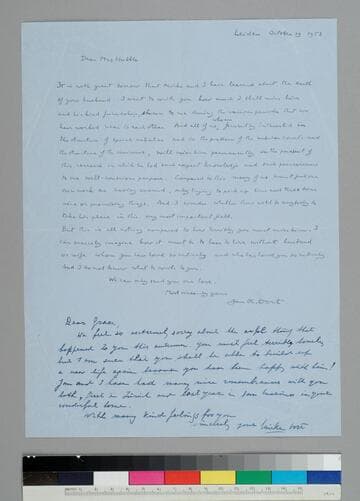 Leiden October 19 1953
Dear Mrs Hubble
It is with great sorrow that Mieke and I have learned about the death
of your husband. I want to write you how much I shall miss him
and his kind friendship shown to me during the various periods that we
have worked near to each other. And all of us, fervently interested in
the structure of space
the structure of the universe, will miss him permanently,
this research in which he had such expert knowledge and such
to one well-conscious purpose. Compared to him many of us must feel our
own work as
more or promising things. And I wonder whether there will be anybody to
take his place in this very most important field.
But this is all nothing compared to how terribly you must miss him. I
can scarcely imagine how it must be to have to live without husband
or wife whom you have loved so entirely and who has loved you so entirely
And I do not know what to write to you.
We can only send you our love.
Most sincerely yours
Jan H. Oort
Dear Grace,
We feel so extremely sorry about the awful thing that
happened to you this autumn. You must feel terribly lonely
but I am sure that you shall be able to build up
a new life again because you have been happy with him!
Jan and I have had many nice remembrances with you
both, first in Zürich and last year in San Marino in your
wonderful home.
With many kind feelings for you
sincerely yours Mieke Oort